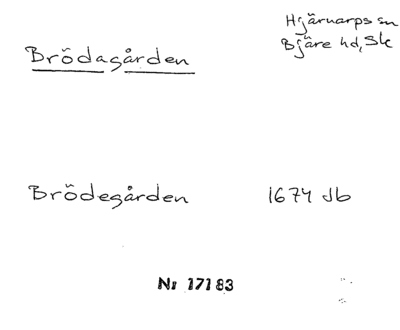 Hjärnarps sn
Bjäre hd, Sk
Brödagården
Brödegården 1674 Jb
Nr 17183